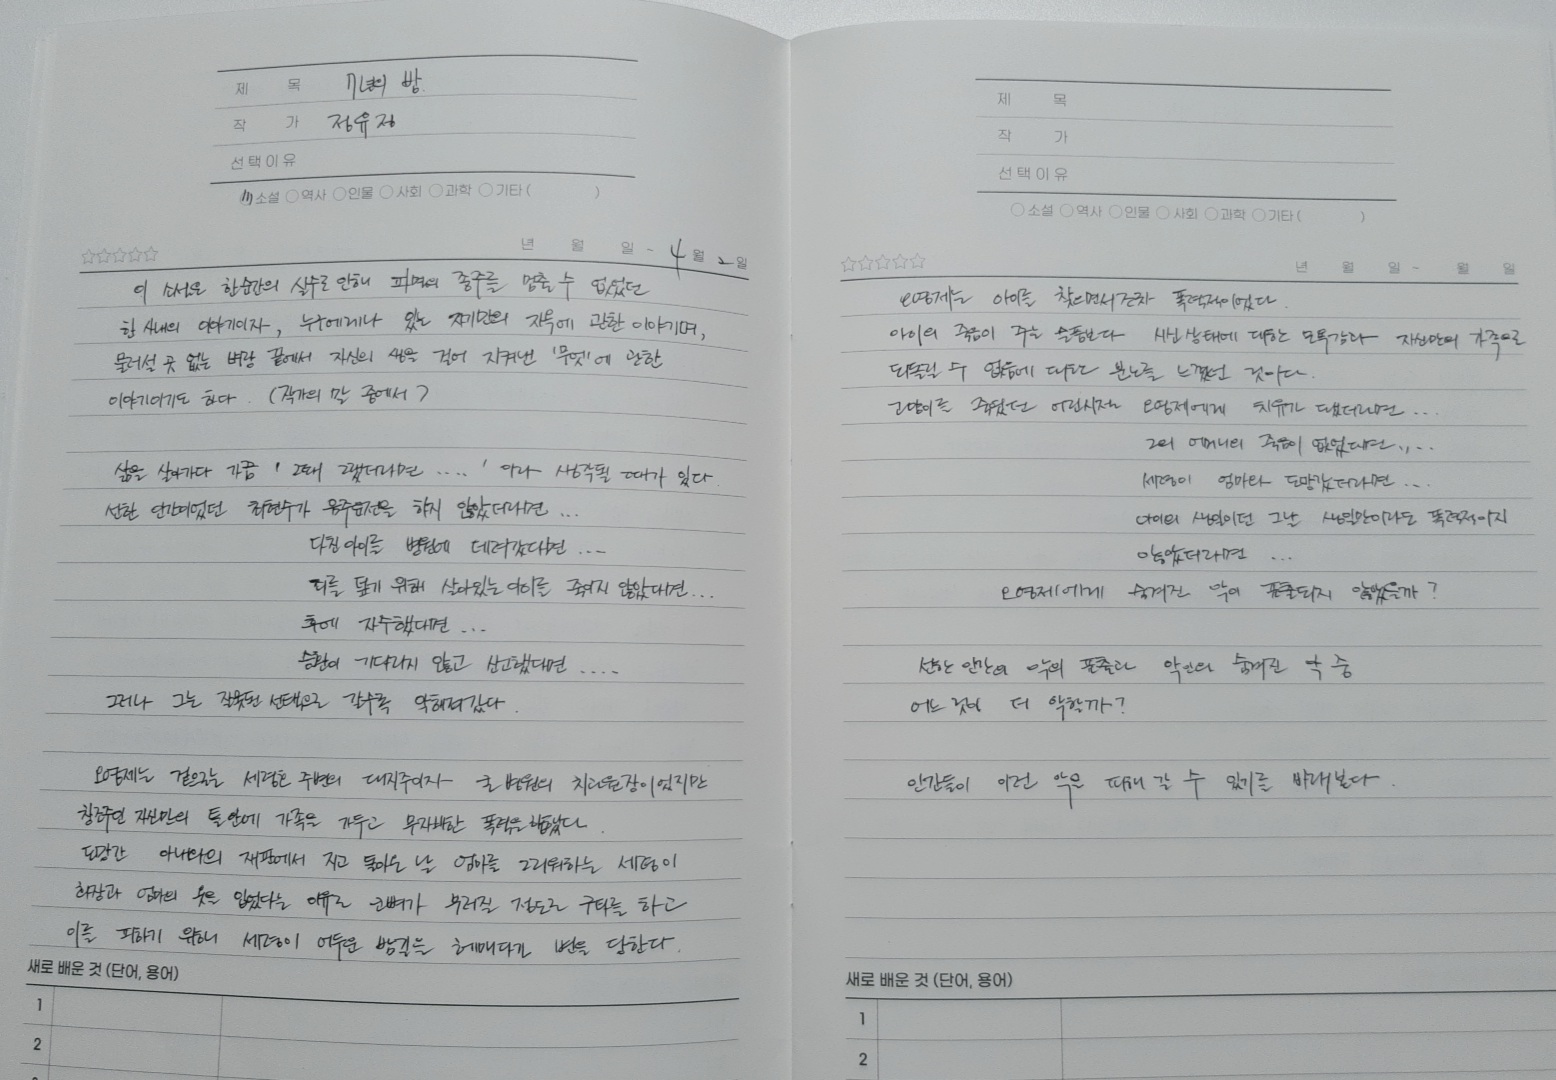 제 목 7년의 밤
작 가 정유정
선택이유
소설 ○역사 ○인물 ○사회 ○과학 ○기타 ( )
☆☆☆☆☆ 년 월 일 ~ 4월 2일
이 소설은 한순간의 실수로 인해 파멸의 종주를 멈출 수 없었던
한 사내의 이야기이자, 누구에게나 있는 자기만의 지옥에 관한 이야기며,
물러설 곳 없는 벼랑 끝에서 자신의 생을 걸어 지켜낸 '무엇'에 관한
이야기이기도 하다. (작가의 말 중에서)
삶을 살아가다 가끔 '그때 그랬더라면....' 이라 생각될 때가 있다.
선한 인간이었던 최현수가 음주운전을 하지 않았더라면...
다친 아이를 병원에 데려갔다면....
죄를 덮기 위해 살아있는 아이를 죽이지 않았다면...
후에 자수했다면...
승환이 기다리지 않고 신고했다면....
그러나 그는 잘못된 선택으로 갈수록 악해져갔다.
오영제는 겉으로는 세령호 주변의 대지주이자 큰 병원의 치과원장이었지만
창조주인 자신만의 틀안에 가족을 가두고 무자비한 폭력을 행했다.
도망간 아내와의 재판에서 지고 돌아온 날 엄마를 그리워하는 세령이
화장과 엄마의 옷을 입었다는 이유로 코뼈가 부러질 정도로 구타를 하고
이를 피하기 위해 세령이 어두운 밤길을 헤매다가 변을 당한다.
새로 배운 것 (단어, 용어)
1
2
제 목
작 가
선택이유
○소설 ○역사 ○인물 ○사회 ○과학 ○기타 ( )
☆☆☆☆☆ 년 월 일 ~ 월 일
오영제는 아이를 찾으면서조차 폭력적이었다.
아이의 죽음이 주는 슬픔보다 시신상태에 대한 모욕감과 자신만의 가족으로
되돌릴 수 없음에 대한 분노를 느꼈던 것이다.
고양이를 죽였던 어린시절 오영제에게 치유가 됐더라면...
그의 어머니의 죽음이 없었다면...
세령이 엄마와 도망갔더라면...
아이의 생일이던 그날 생일만이라도 폭력적이지
않았더라면 ...
오영제에게 숨겨진 악이 표출되지 않았을까?
선한 인간의 악의 표출과 악인의 숨겨진 악 중
어느 것이 더 악할까?
인간들이 이런 악을 피해 갈 수 있기를 바래본다.
새로 배운 것 (단어, 용어)
1
2